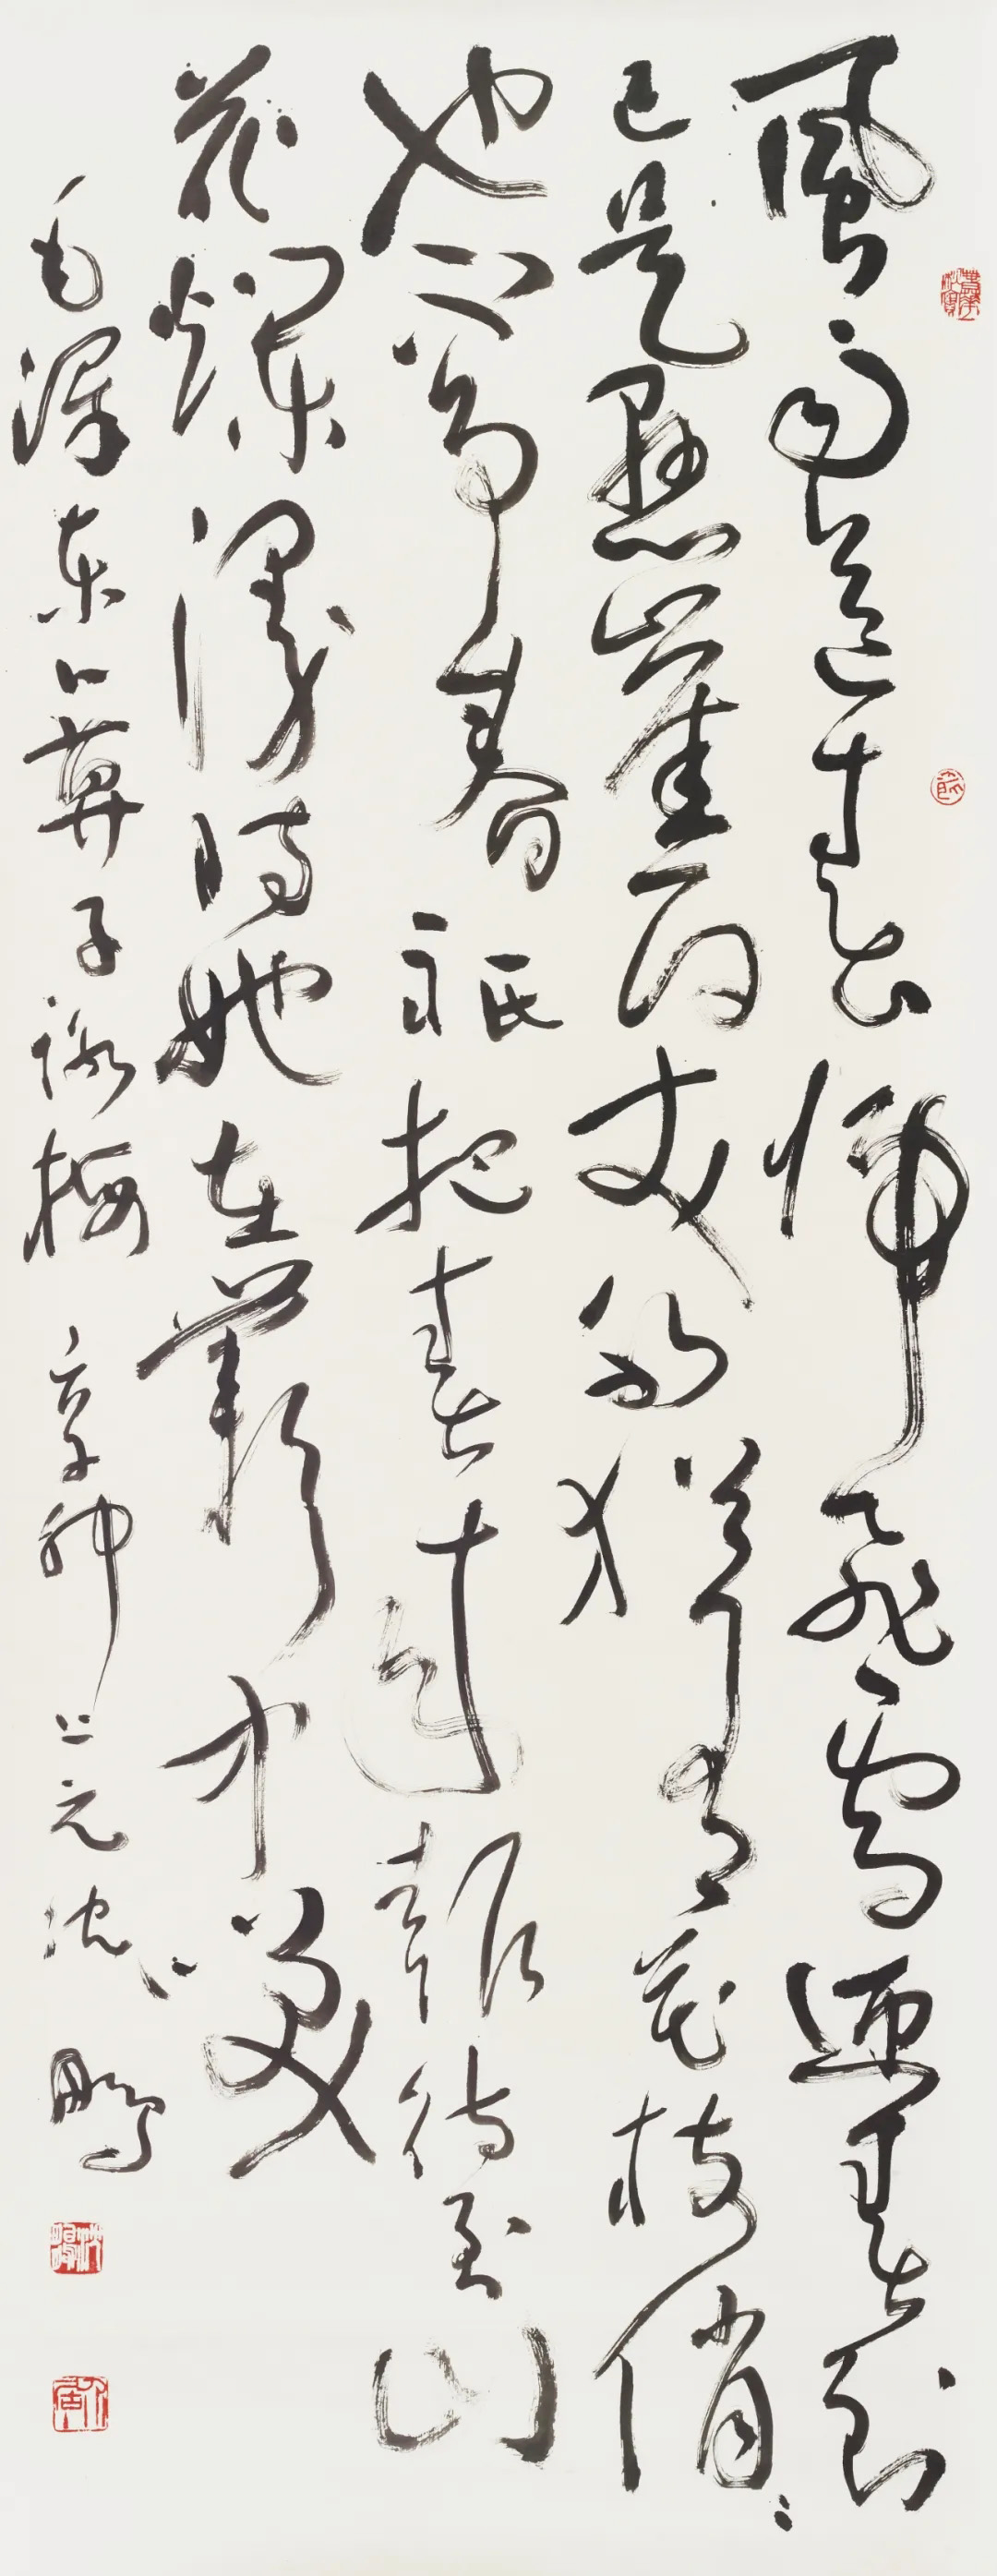 風雨送春歸飛雪迎春到
已是懸崖百丈冰猶有花枝俏〻
也不爭春祇把春來報待到山
花爛漫時她在叢中笑
毛澤東卜算子詠梅 辛卯上元沈鵬
沈鵬
介居